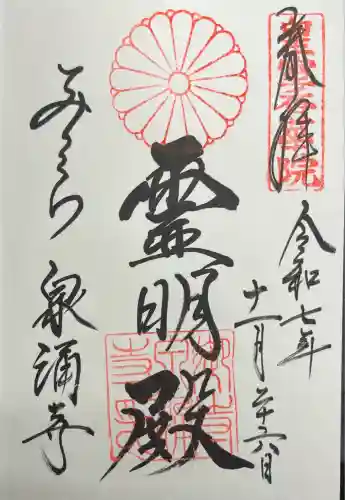 奉拝
令和七年
十一月二十六日
霊明殿
みてら
泉涌寺